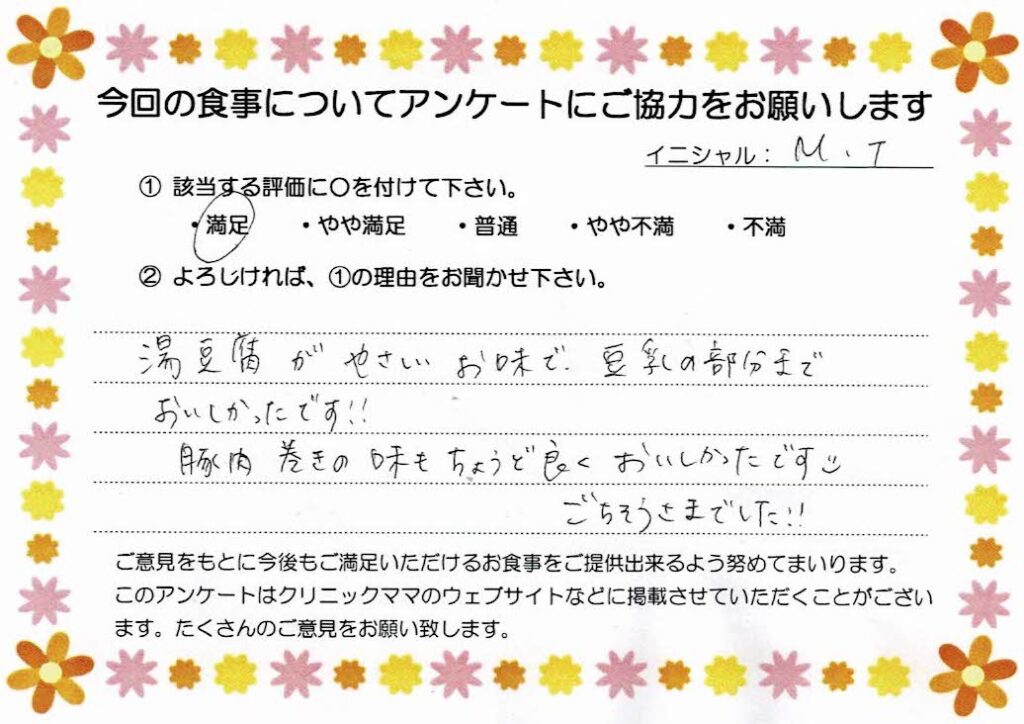 今回の食事についてアンケートにご協力をお願いします
イニシャル： M.T
① 該当する評価に〇を付けて下さい。
・満足 ・やや満足 ・普通 ・やや不満 ・不満
② よろしければ、①の理由をお聞かせ下さい。
湯豆腐が やさしい お味で、豆乳の部分まで
おいしかったです!!
豚肉巻きの味もちょうど良く おいしかったです
ごちそうさまでした!!
ご意見をもとに今後もご満足いただけるお食事をご提供出来るよう努めてまいります。
このアンケートはクリニックママのウェブサイトなどに掲載させていただくことがござい
ます。たくさんのご意見をお願い致します。